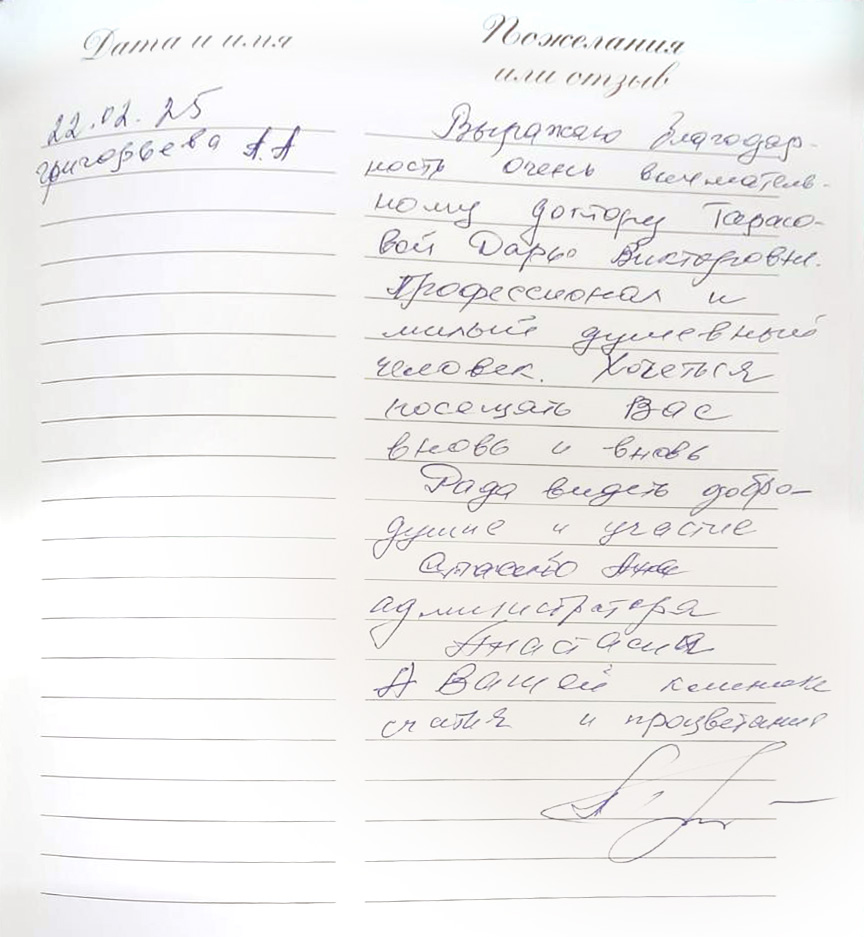 Дата и имя
Пожелания
или отзыв
22.02.25
Григорьева А.А
Выражаю благодар-
ность очень вниматель-
ному доктору Тарасо-
вой Дарье Викторовне.
Профессионал и
милый душевный
человек. Хочеться
посещать Вас
вновь и вновь
Рада видеть добро-
душие и участие
Спасибо
администратора
Анастасия
А Вашей клинике
счатия и процветания